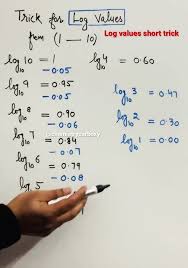 Trick for Log Values
from (1 — 10)
Log values short trick
log₁₀ 10 = 1
- 0.05
log₁₀ 9 = 0.95
- 0.05
log₁₀ 8 = 0.90
- 0.06
log₁₀ 7 = 0.84
- 0.07
log₁₀ 6 = 0.79
- 0.08
log 5
log₁₀ 4 = 0.60
log₁₀ 3 = 0.47
log₁₀ 2 = 0.30
log₁₀ 1 = 0.00